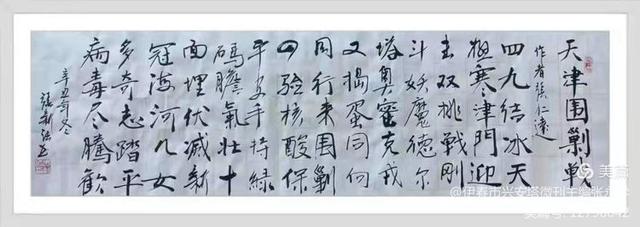 天津围剿戰
作者張仁達
四九结冰天
极寒津門迎
击双挑戰刚
斗妖魔德尔
塔奥密克戎
又捣蛋同向
同行来围剿
四验核酸保
平安手持綠
码膽氣壮十
面埋伏滅新
冠海河儿女
多奇志踏平
病毒尽腾歡
辛丑年冬
張新
美篇
@伊春市兴安塔微刊主编张永
美篇号:12798042